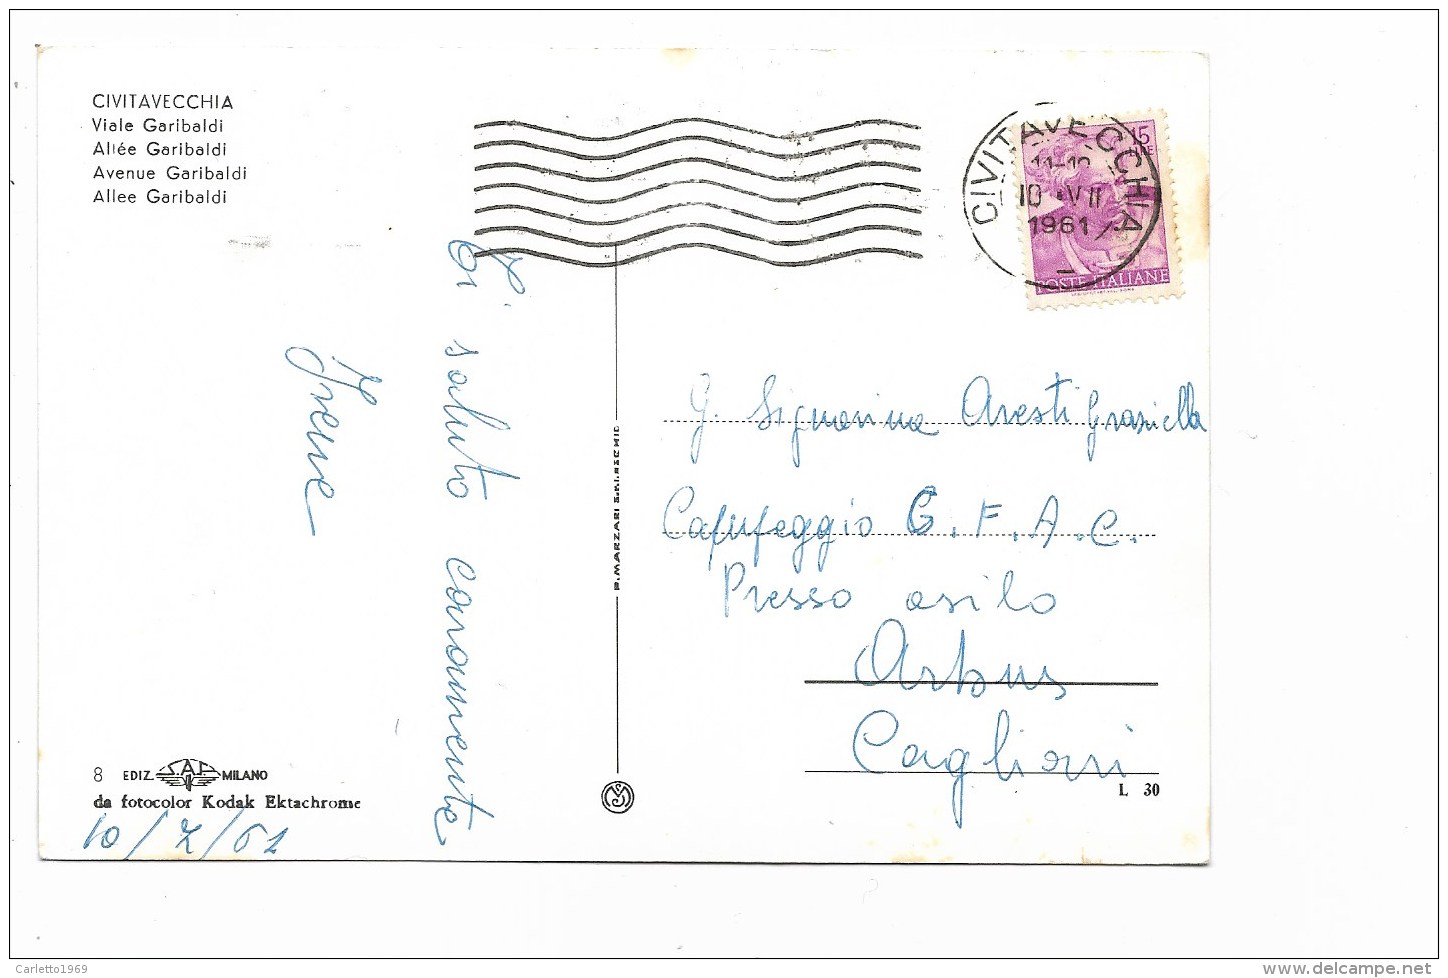 CIVITAVECCHIA
Viale Garibaldi
Allée Garibaldi
Avenue Garibaldi
Allee Garibaldi
CIVITAVECCHIA
10 • VII
1961
15
LIRE
POSTE ITALIANE
Ti saluto caramente
Irene
G. Signorina Aresti Graziella
Campeggio G.F.A.C.
Presso asilo
Arbus
Cagliari
L 30
8 EDIZ. S.A.F. MILANO
da fotocolor Kodak Ektachrome
10/7/61
Carletto1969
www.delcampe.net